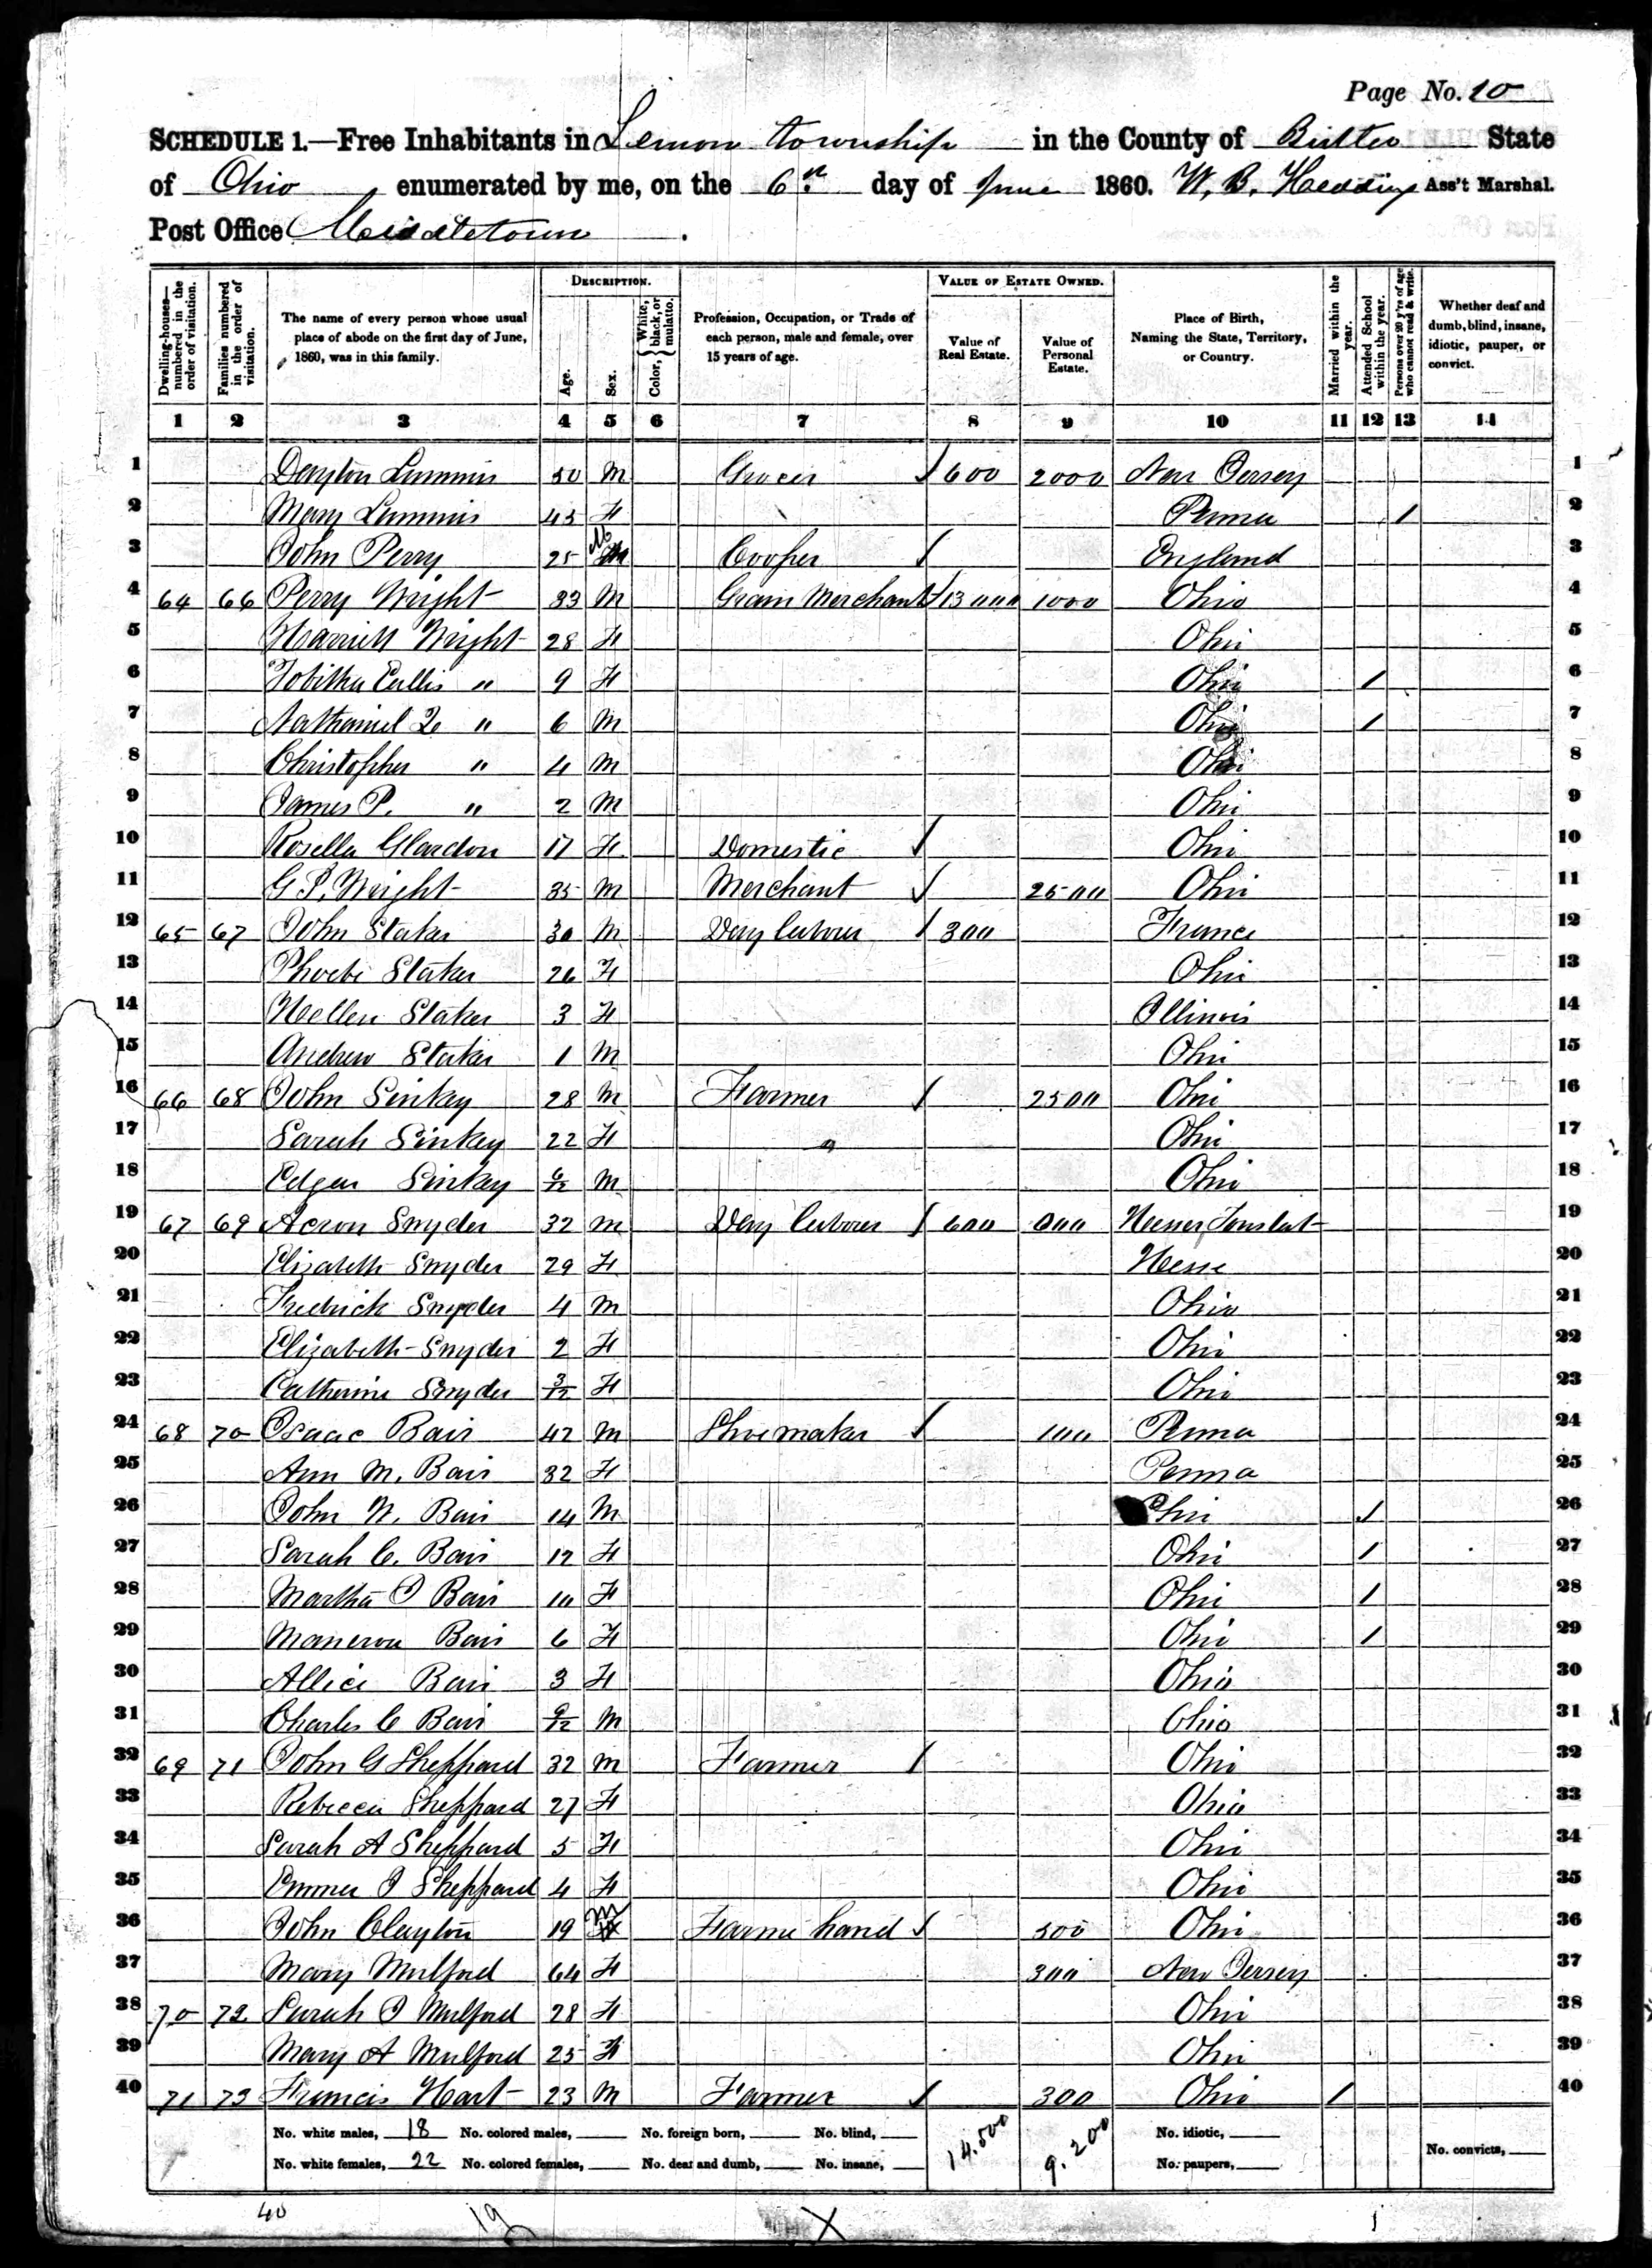 Page No. 10
SCHEDULE 1.—Free Inhabitants in Lemon township in the County of Butler State
of Ohio enumerated by me, on the 6th day of June 1860. W. B. Ass't Marshal.
Post Office Middletown.
Dwelling-houses—numbered in the order of visitation. Families numbered in the order of visitation. The name of every person whose usual place of abode on the first day of June, 1860, was in this family. DESCRIPTION. Age. Sex. Color, { White, black, or mulatto. Profession, Occupation, or Trade of each person, male and female, over 15 years of age. VALUE OF ESTATE OWNED. Value of Real Estate. Value of Personal Estate. Place of Birth, Naming the State, Territory, or Country. Married within the year. Attended School within the year. Persons over 20 y'rs of age who cannot read & write. Whether deaf and dumb, blind, insane, idiotic, pauper, or convict.
1 2 3 4 5 6 7 8 9 10 11 12 13 14
1 Dayton Lummis 50 M Grocer / 600 2000 New Jersey 1
2 Mary Lummis 45 F Penna / 2
3 John Perry 25 M Cooper / England 3
4 64 66 Perry Wright 33 M Grain Merchant / 13000 1000 Ohio 4
5 Harriett Wright 28 F Ohio 5
6 Tobitha " 9 F Ohio / 6
7 Nathaniel " 6 M Ohio / 7
8 Christopher " 4 M Ohio 8
9 James P. " 2 M Ohio 9
10 Rosella Glardon 17 F Domestic / Ohio 10
11 G. P. Wright 35 M Merchant / 2500 Ohio 11
12 65 67 John Staker 30 M Day labourer / 300 France 12
13 Phoebe Staker 26 F Ohio 13
14 Hellen Staker 3 F Illinois 14
15 Andrew Staker 1 M Ohio 15
16 66 68 John Sinkay 28 M Farmer / 2500 Ohio 16
17 Sarah Sinkay 22 F Ohio 17
18 Edgar Sinkay M Ohio 18
19 67 69 Acron Snyder 32 M Day labourer / 600 Hesser 19
20 Elizabeth Snyder 29 F Hesse 20
21 Fredrick Snyder 4 M Ohio 21
22 Elizabeth Snyder 2 F Ohio 22
23 Catherine Snyder 3/12 F Ohio 23
24 68 70 Isaac Bair 42 M Shoemaker / 100 Penna 24
25 Ann M. Bair 32 F Penna 25
26 John W. Bair 14 M Ohio / 26
27 Sarah C. Bair 12 F Ohio / 27
28 Martha J Bair 10 F Ohio / 28
29 Manerva Bair 6 F Ohio / 29
30 Allice Bair 3 F Ohio 30
31 Charles C Bair 9/12 M Ohio 31
32 69 71 John G Sheppard 32 M Farmer / Ohio 32
33 Rebecca Sheppard 27 F Ohio 33
34 Sarah A Sheppard 5 F Ohio 34
35 Emmer J Sheppard 4 F Ohio 35
36 John Clayton 19 M Farme hand / 500 Ohio 36
37 Mary Mulford 64 F 300 New Jersey 37
38 70 72 Sarah J Mulford 28 F Ohio 38
39 Mary A Mulford 25 F Ohio 39
40 71 73 Francis Hart 23 M Farmer / 300 Ohio / 40
No. white males, 18 No. colored males, No. foreign born, No. blind, 14.500 9.200 No. idiotic,
No. white females, 22 No. colored females, No. deaf and dumb, No. insane, No. paupers, No. convicts,
40 19 X 1